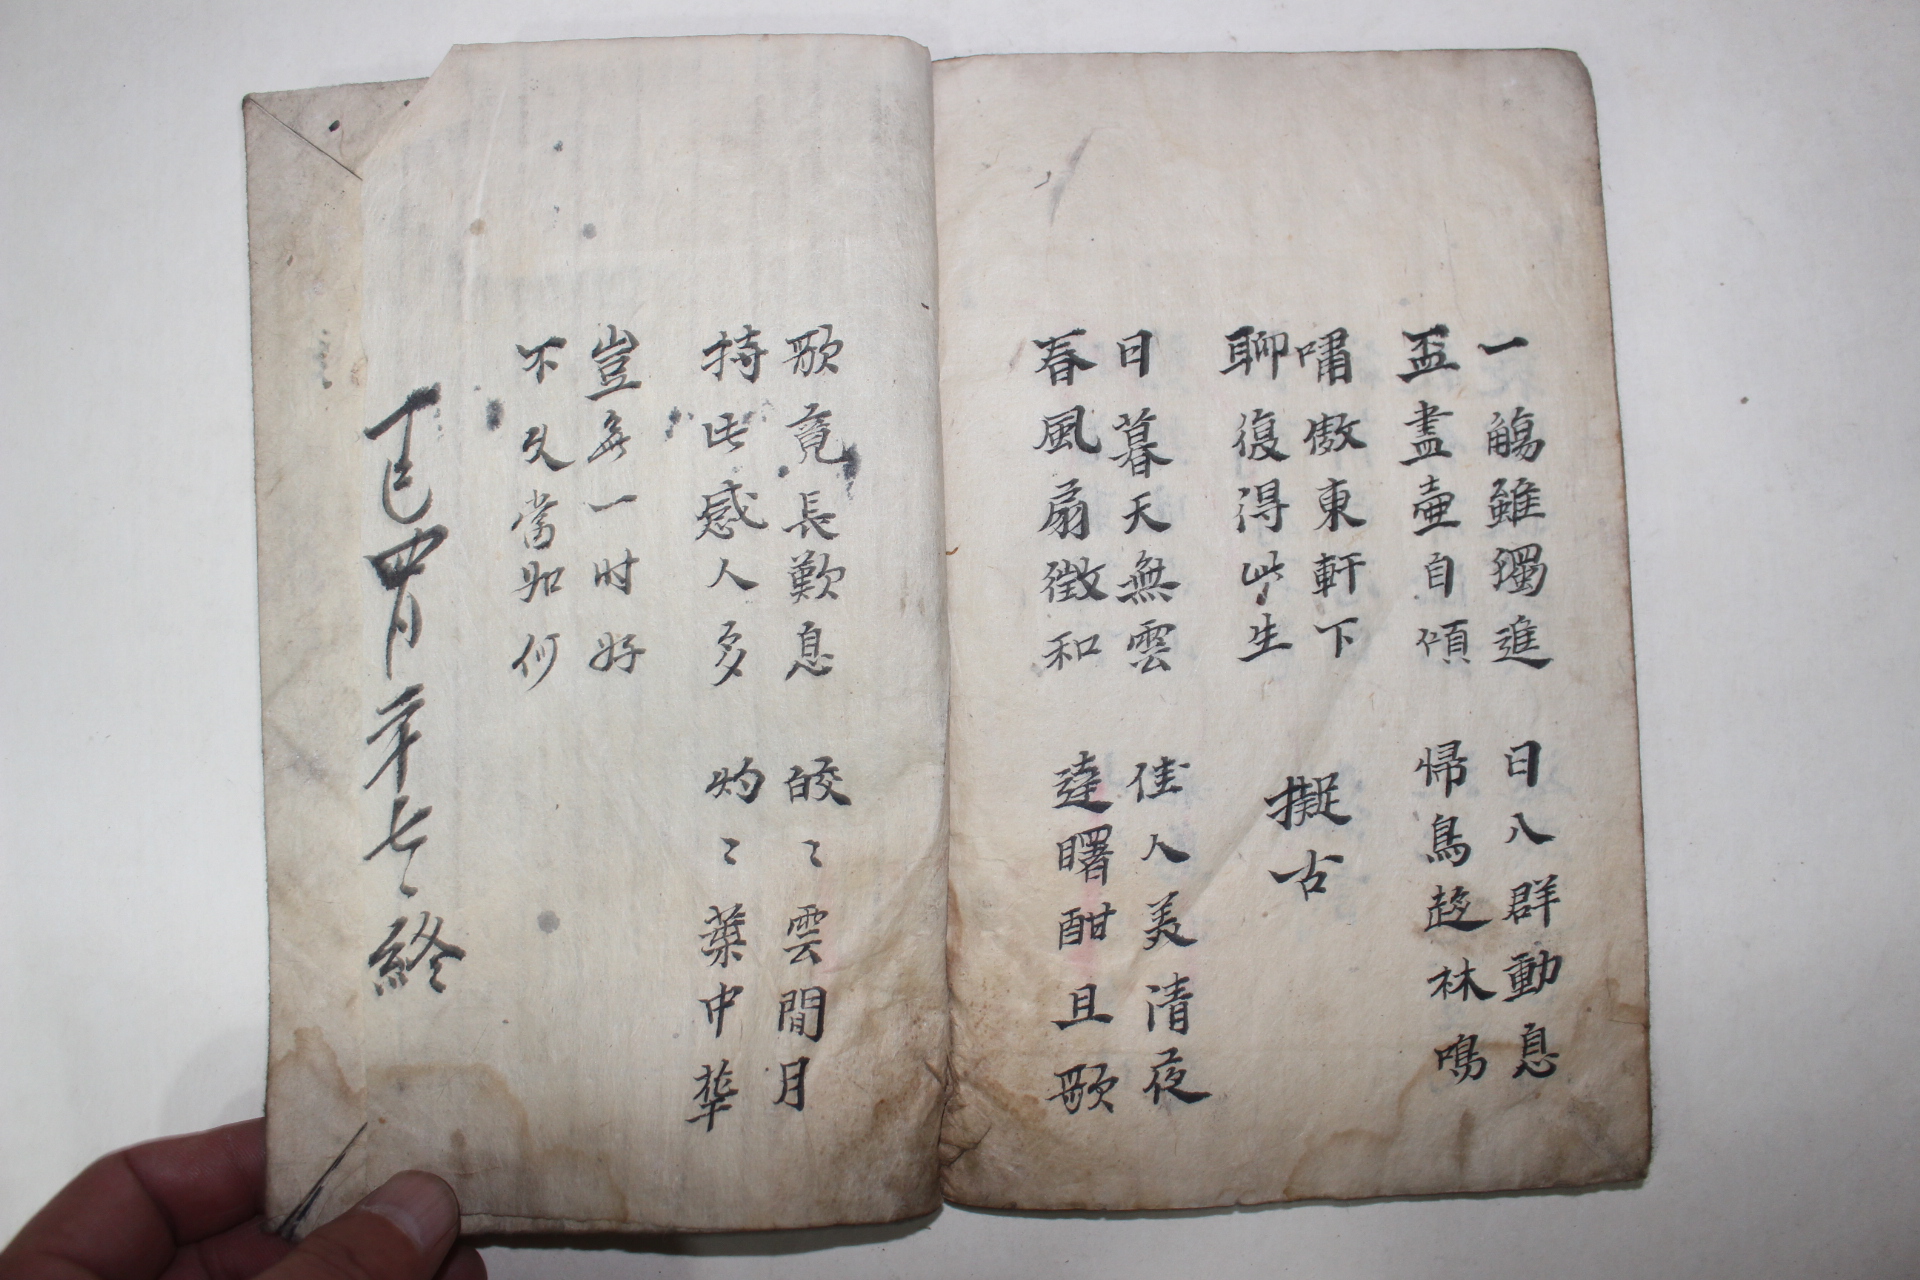 一觴雖獨進 日八群動息
盃盡壷自傾 帰鳥趍林鳴
嘯傲東軒下
聊復得此生
擬古
日暮天無雲 佳人美清夜
春風扇徴和 達曙酣且歌
歌竟長歎息 皎〻雲間月
持此感人多 灼〻葉中華
豈無一时好
不久當如何
丁巳四月二十七日終